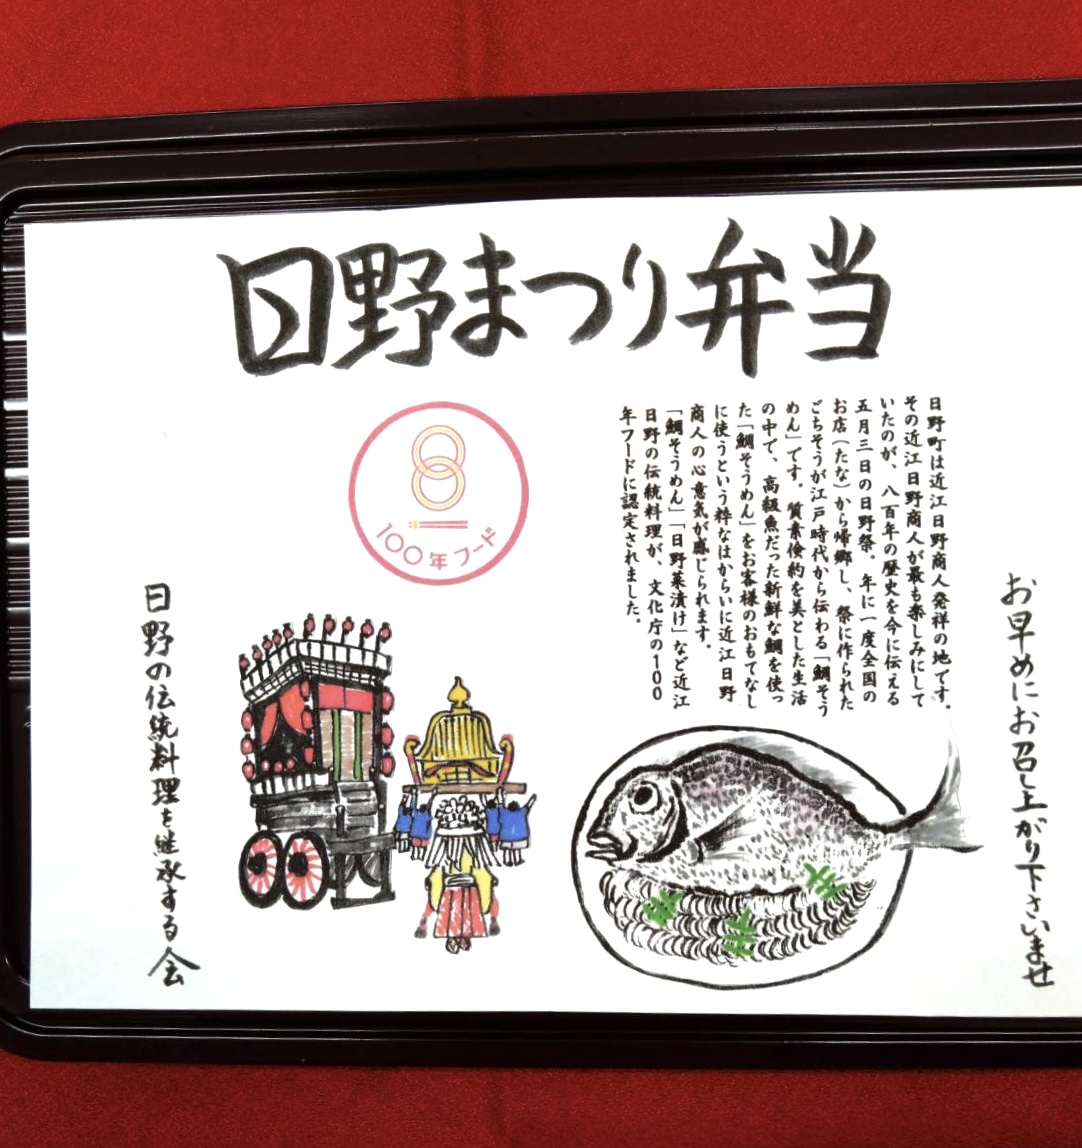 日野まつり弁当
お早めにお召し上がり下さいませ
日野町は近江日野商人発祥の地です。
その近江日野商人が最も楽しみにして
いたのが、八百年の歴史を今に伝える
五月三日の日野祭。年に一度全国の
お店(たな)から帰郷し、祭に作られた
ごちそうが江戸時代から伝わる「鯛そう
めん」です。質素倹約を美とした生活
の中で、高級魚だった新鮮な鯛を使っ
た「鯛そうめん」をお客様のおもてなし
に使うという粋なはからいに近江日野
商人の心意気が感じられます。
「鯛そうめん」「日野菜漬け」など近江
日野の伝統料理が、文化庁の100
年フードに認定されました。
100年フード
日野の伝統料理を継承する会